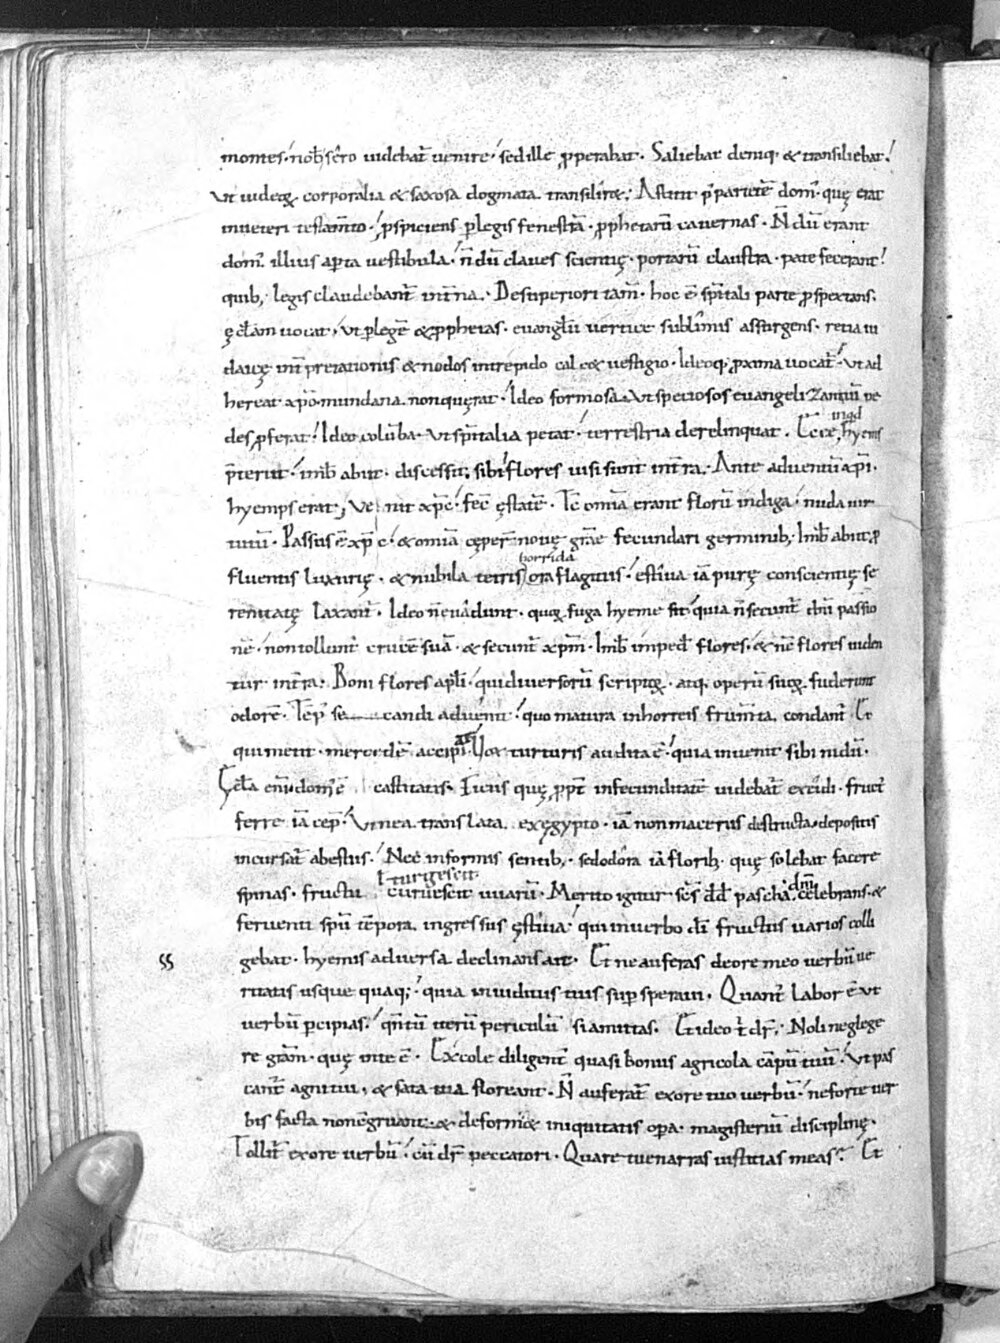 montes· nob̄ sero uidebat̄ uenire· sed ille ꝓperabat· Saliebat deniq· & transiliebat·
Ut iudeoꝝ corporalia & saxosa dogmata transiliret· Astitit p̄ parietē dom̄· quę erat
in ueteri testam̄to· ꝓspiciens ꝑ legis fenestrā· ꝓphetarū cauernas· N̄ dū erant
dom̄ illius aꝑta uestibula· n̄ dū claues scientię· portarū claustra· patefecerant·
quib; legis claudebant̄ int̄na· De superiori tam̄· hoc ē sp̄itali parte ꝓspectans·
ęccl̄am uocat· ut ꝑ legē & ꝓphetas· euangl̄ii uertice sublimis assurgens· retia iu
daicę int̄pretationis & nodos intrepido calcet uestigio· Ideoq· ꝓxima uocat̄· ut ad
hereat xp̄o· mundana non quęrat· Ideo formosa· ut speciosos euangelizantiū pe
des ꝓferat· Ideo colūba· ut sp̄italia petat· terrestria derelinquat· Ecce, inqd hyems
p̄teriit· imb̄ abiit· discessit; sibi flores uisi sunt int̄ra· Ante aduentū xp̄i·
hyemps erat· Venit xp̄c· fec̄ ęstatē· Tc̄ omīa erant florū indiga· nuda uir
tutū· Passus ē xp̄c· & omīa cęper̄ nouę gr̄ae fecundari germinib;· Imb̄ abiit· ꝓ
fluentis luxurię· & nubila tetris horrida ora flagitiis· estiua iā purę conscientię se
renitatę laxant̄· Ideo n̄ euadunt· quoꝝ fuga hyeme fit· quia n̄ secunt̄ dn̄i passio
nē· non tollunt̄ crucē suā· & secunt̄ xp̄m· Imb̄ imped̄ flores· & nc̄ flores uiden
tur int̄ra· Boni flores apl̄i· qui diuersorū scriptoꝝ· atq· operū suoꝝ fuderunt
odorē· Tēp̄ secandi aduenit· quo matura in horreis frum̄ta condant̄· Et
qui metit· mercedē accipiat· Vox turturis audita ē· quia inuenit sibi nidū·
Ęccl̄a enī dom̄ ē castitatis· Ficus quę ꝓpt̄ infecunditatē uidebat̄ excidi· fruct̄
ferre iā cep̄· Vinea translata ex ęgypto· iā non maceriis destructa· depositis
incursat̄ abestiis· Nec informis sentib;· sed odora iā florib;· quę solebat facere
spinas· fructu ł turgescit curuescit uuarū· Merito igitur sc̄s dd̄ pascha dn̄i celebrans· &
feruenti spū tēpora ingressus ęstiua· qui in uerbo dī fructus uarios colli
gebat· hyemis aduersa declinans ait· Et ne auferas de ore meo uerbū ue
ritatis usque quaq;· quia in iudiciis tuis suꝑ speraui· Quant̄ labor ē ut
uerbū ꝑcipias· qn̄tū uerū periculū si amittas· Et ideo t̄ dr̄· Noli neglege
re gr̄am· quę in te ē· Excole diligent̄ quasi bonus agricola cāpū tuū· ut pas
cant̄ agni tui, & sata tua floreant· N̄ auferat̄ ex ore tuo uerbū· ne forte uer
bis facta non cōgruant· & deformet iniquitatis oꝑa· magisteriū disciplinę·
Tollit̄ ex ore uerbū· cū dr̄ peccatori· Quare tu enarras iustitias meas? Et